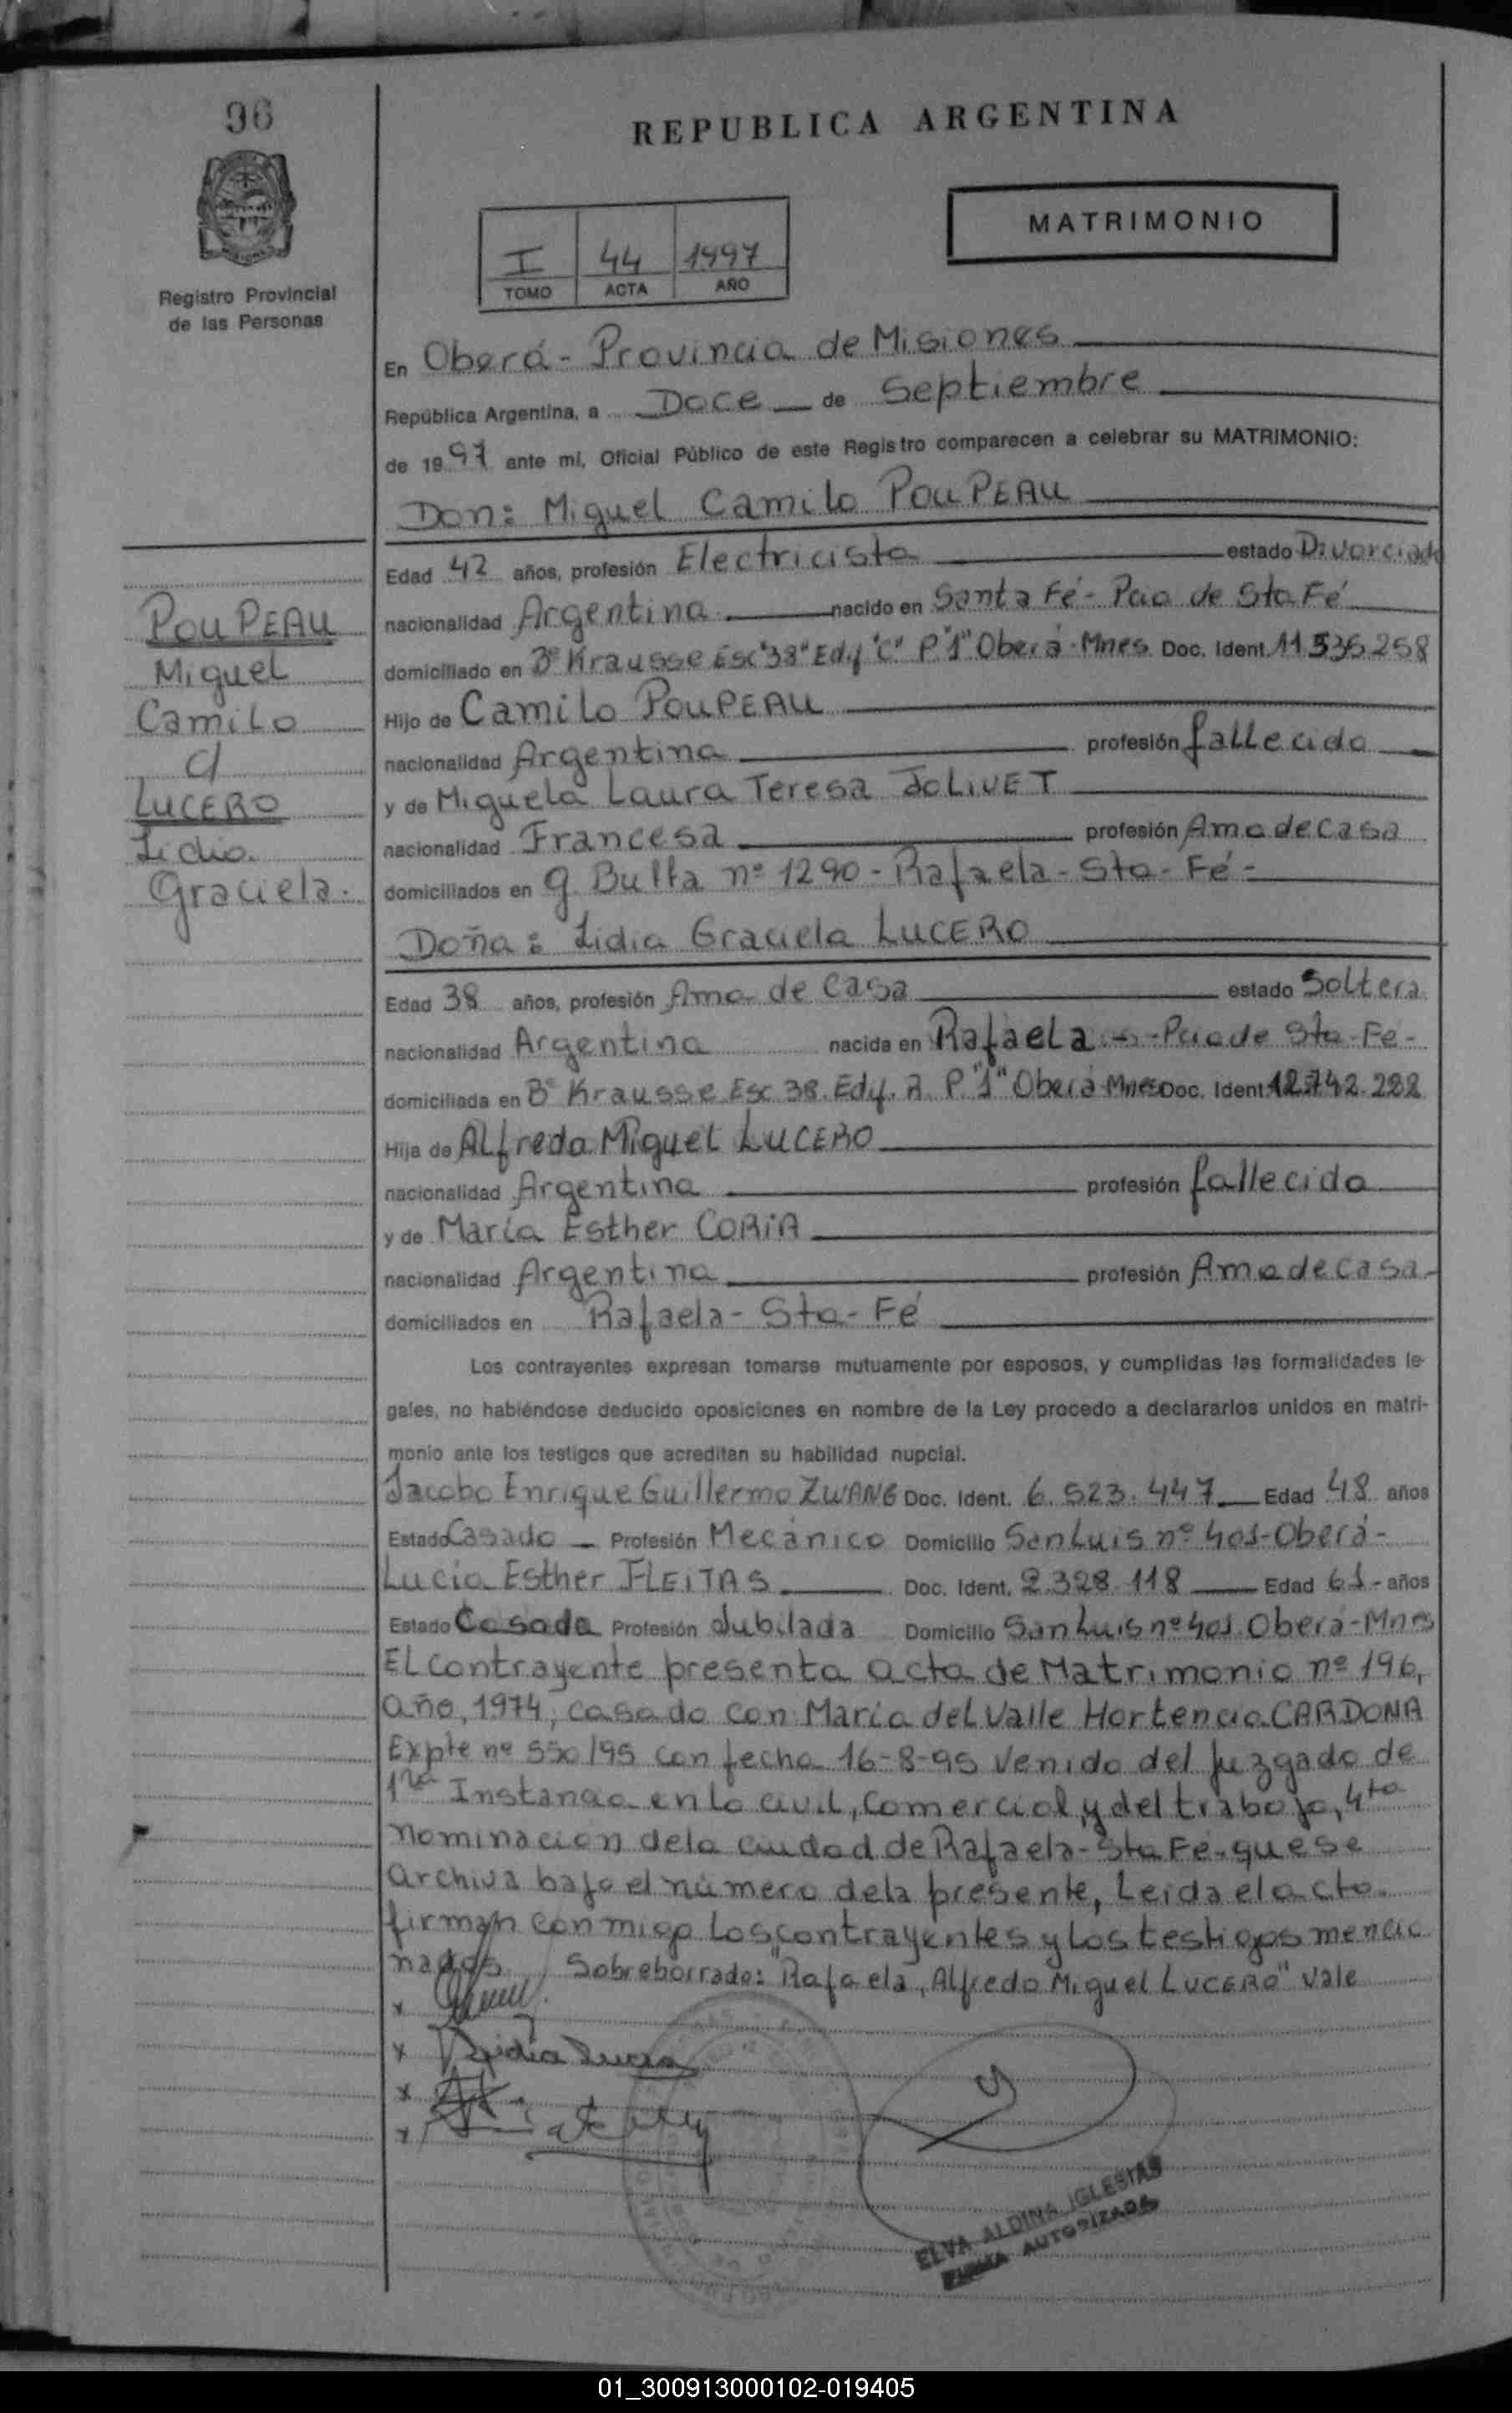 96
REPUBLICA ARGENTINA
Registro Provincial
de las Personas
I 44 1997
TOMO ACTA AÑO
MATRIMONIO
En Oberá - Provincia de Misiones
República Argentina, a Doce de Septiembre
de 1997 ante mí, Oficial Público de este Registro comparecen a celebrar su MATRIMONIO:
Don: Miguel Camilo POUPEAU
POUPEAU
Miguel
Camilo
c/
LUCERO
Lidia
Graciela.
Edad 42 años, profesión Electricista estado Divorciado
nacionalidad Argentina nacido en Santa Fé - Pcia de Sta Fé
domiciliado en Bº Krausse Esc "38" Edif "C" P "1" Oberá - Mnes. Doc. Ident. 11.535.258
Hijo de Camilo POUPEAU
nacionalidad Argentina profesión fallecido
y de Miguela Laura Teresa JOLIVET
nacionalidad Francesa profesión Ama de casa
domiciliados en g. Bulla nº 1290 - Rafaela - Sta - Fé -
Doña: Lidia Graciela LUCERO
Edad 38 años, profesión Ama de casa estado Soltera
nacionalidad Argentina nacida en Rafaela - Pcia de Sta - Fe -
domiciliada en Bº Krausse Esc 38. Edif. A P. "1" Oberá Mnes Doc. Ident. 12.742.282
Hija de Alfredo Miguel LUCERO
nacionalidad Argentina profesión fallecido
y de María Esther CORIA
nacionalidad Argentina profesión Ama de casa -
domiciliados en Rafaela - Sta - Fé
Los contrayentes expresan tomarse mutuamente por esposos, y cumplidas las formalidades le-
gales, no habiéndose deducido oposiciones en nombre de la Ley procedo a declararlos unidos en matri-
monio ante los testigos que acreditan su habilidad nupcial.
Jacobo Enrique Guillermo ZWANG Doc. Ident. 6.523.447 Edad 48 años
Estado Casado Profesión Mecánico Domicilio San Luis nº 401 - Oberá -
Lucia Esther FLEITAS Doc. Ident. 2.328.118 Edad 61 - años
Estado Casada Profesión Jubilada Domicilio San Luis nº 401 Oberá - Mnes
El contrayente presenta acta de Matrimonio nº 196,
año, 1974, casado con María del Valle Hortencia CARDONA
Expte nº 550/95 con fecha 16-8-95 venido del Juzgado de
1ra Instancia en lo civil, comercial y del trabajo, 4ta
nominación de la ciudad de Rafaela - Sta Fé - que se
archiva bajo el número de la presente, Leida el acto
firman conmigo los contrayentes y los testigos mencio
nados Sobreborrado: "Rafaela, Alfredo Miguel LUCERO" vale
x
x Lidia Lucero
x
x
ELVA ALDINA IGLESIAS
FIRMA AUTORIZADA
01_300913000102-019405